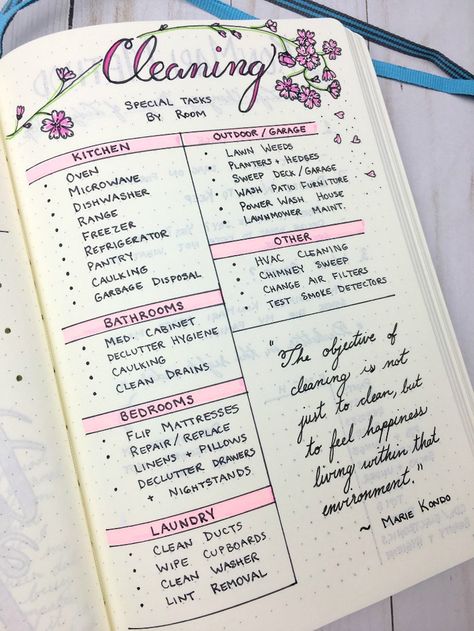 Cleaning
SPECIAL TASKS
BY ROOM
KITCHEN
• OVEN
• MICROWAVE
• DISHWASHER
• RANGE
• FREEZER
• REFRIGERATOR
• PANTRY
• CAULKING
• GARBAGE DISPOSAL
BATHROOMS
• MED. CABINET
• DECLUTTER HYGIENE
• CAULKING
• CLEAN DRAINS
BEDROOMS
• FLIP MATTRESSES
• REPAIR/REPLACE
• LINENS + PILLOWS
• DECLUTTER DRAWERS
+ NIGHTSTANDS
LAUNDRY
• CLEAN DUCTS
• WIPE CUPBOARDS
• CLEAN WASHER
• LINT REMOVAL
OUTDOOR/GARAGE
• LAWN WEEDS
• PLANTERS + HEDGES
• SWEEP DECK/GARAGE
• WASH PATIO FURNITURE
• POWER WASH HOUSE
• LAWNMOWER MAINT.
OTHER
• HVAC CLEANING
• CHIMNEY SWEEP
• CHANGE AIR FILTERS
• TEST SMOKE DETECTORS
"The objective of
cleaning is not
just to clean, but
to feel happiness
living within that
environment."
~ MARIE KONDO